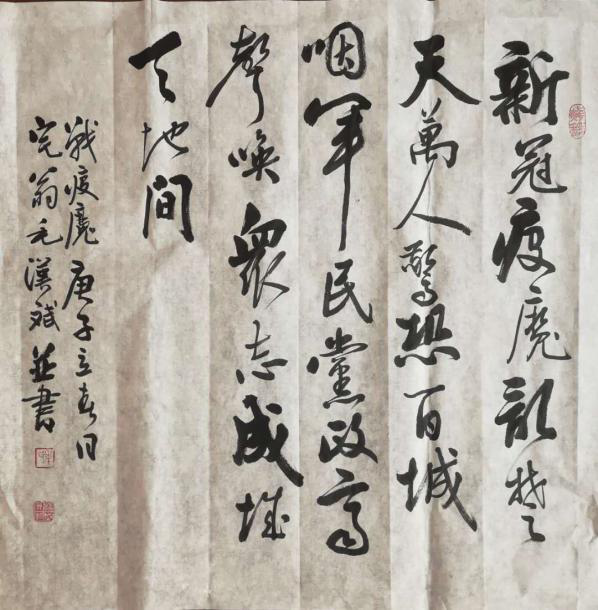 新冠疫魔亂楚
天萬人驚恐百城
咽軍民黨政高
聲喚衆志成城
天地間
戰疫魔 庚子立春日
完翁毛漢斌並書